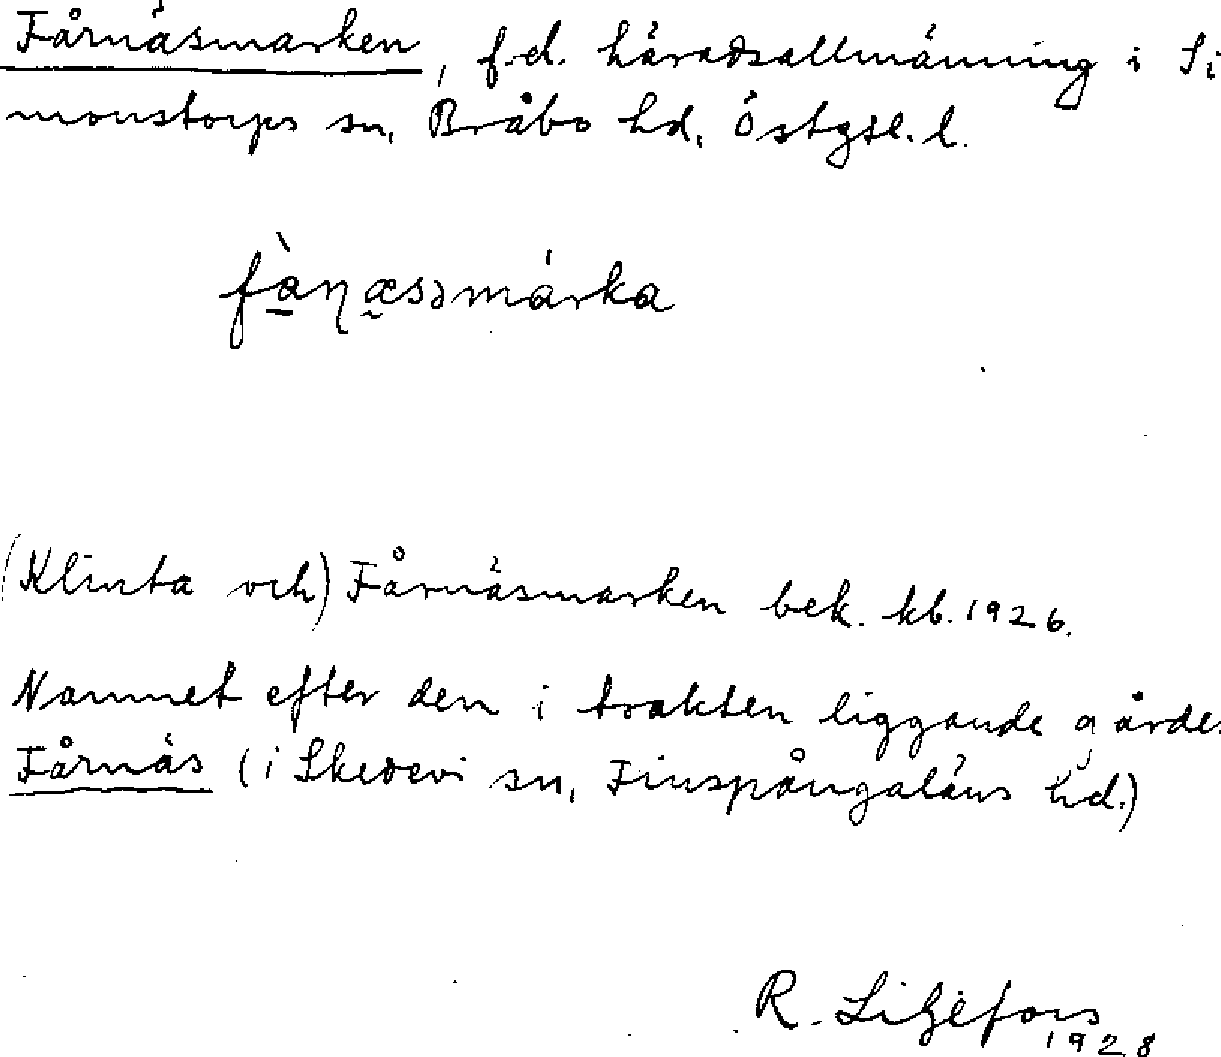 Fårnäsmarken, f.d. häradsallmänning i Si
monstorps sn, Bråbo hd, Östgötl. l.
(Klinta och) Fårnäsmarken bek. kb. 1926.
Namnet efter den i trakten liggande gårde
Fårnäs (i Skedevi sn, Finspångaläns hd.)
R. Liljefors
1928